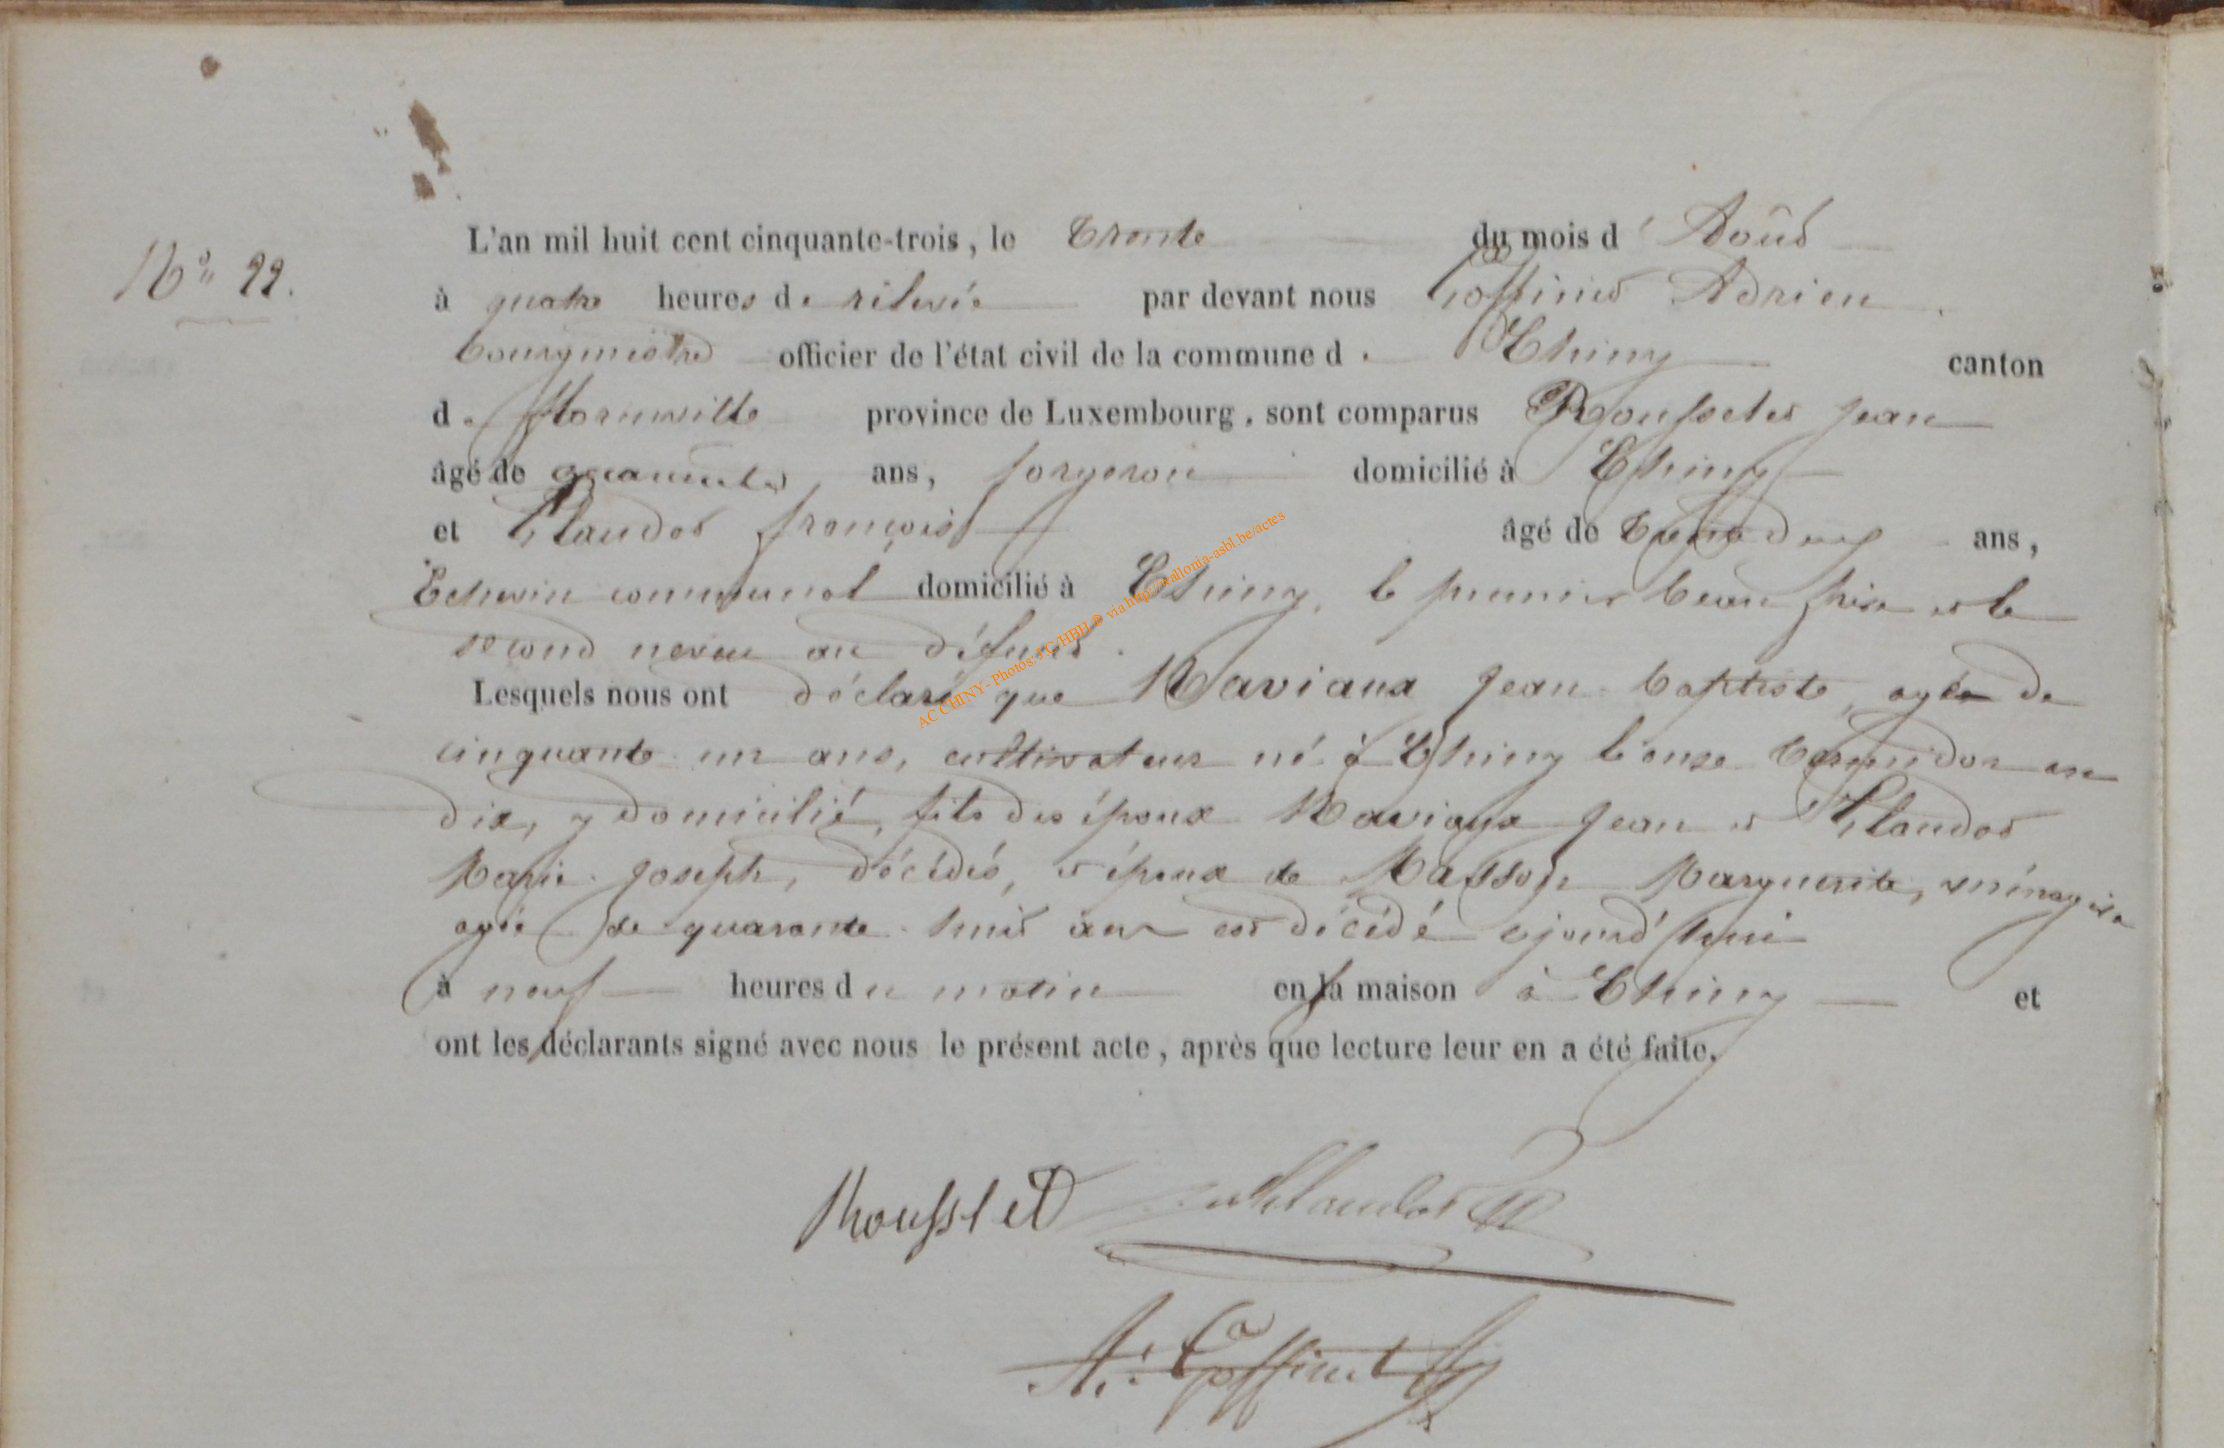 L'an mil huit cent cinquante-trois, le trente du mois d'Août
N° 22.
à quatre heures de rélevée par devant nous Goffinet Adrien
bourgmestre officier de l'état civil de la commune de Chiny canton
de florenville province de Luxembourg, sont comparus Rousselet jean
âgé de quarante ans, forgeron domicilié à Chiny
et Planchot françois âgé de trente deux ans,
Echevin communal domicilié à Chiny, le premier beau frère et le
second neveu au défunt.
Lesquels nous ont déclaré que Maviaux Jean-baptiste, agée de
cinquante-un ans, cultivateur né à Chiny le onze thermidor an
dix, y domicilié, fils des époux Maviaux Jean et
Marie-Joseph, décédés, et époux de Masson Marguerite, ménagère
agée de quarante-huit ans est décédé ajourd'hui
à neuf heures du matin en sa maison à Chiny et
ont les déclarants signé avec nous le présent acte, après que lecture leur en a été faite.
Rousslet
A. Goffinet
AC CHINY - Photos: TC/HBH © via http://wallonia-asbl.be/actes